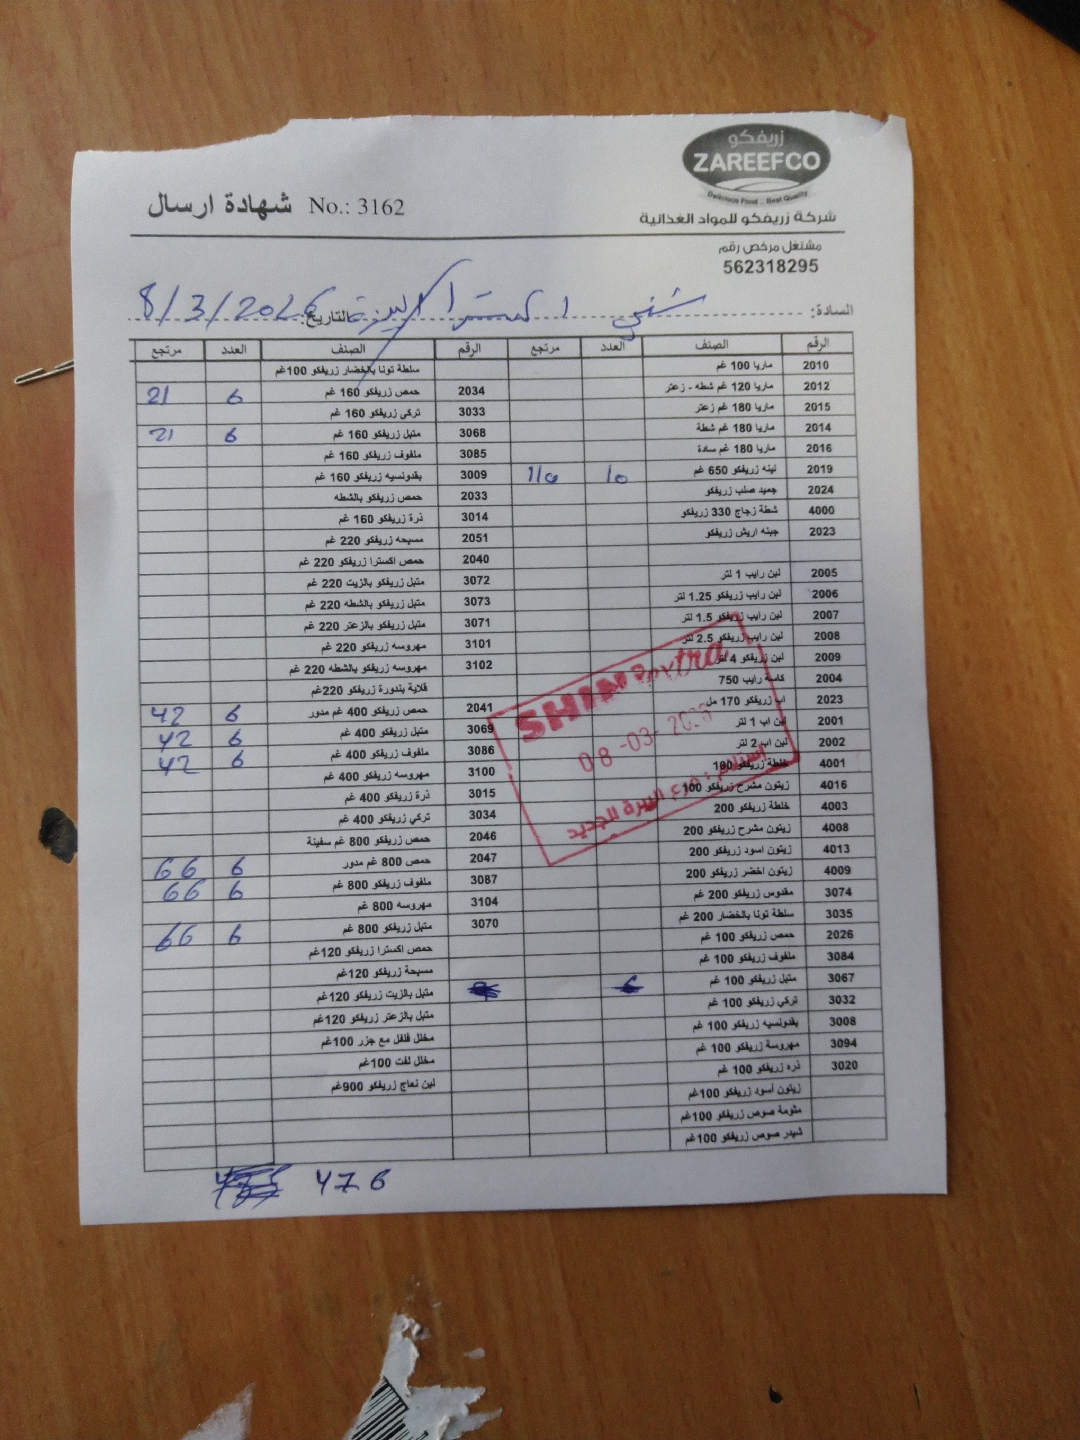 زريفكو
ZAREEFCO
Delicious Food .. Best Quality
شركة زريفكو للمواد الغذائية
شهادة ارسال No.: 3162
مشتغل مرخص رقم
562318295
السادة: شني اكسترا البيرة التاريخ: 8/3/2026
الرقم الصنف العدد مرتجع الرقم الصنف العدد مرتجع
2010 ماريا 100 غم سلطة تونا بالخضار زريفكو 100غم
2012 ماريا 120 غم شطه - زعتر 2034 حمص زريفكو 160 غم 6 21
2015 ماريا 180 غم زعتر 3033 تركي زريفكو 160 غم
2014 ماريا 180 غم شطة 3068 متبل زريفكو 160 غم 6 21
2016 ماريا 180 غم سادة 3085 ملفوف زريفكو 160 غم
2019 لبنه زريفكو 650 غم 10 110 3009 بقدونسيه زريفكو 160 غم
2024 جميد صلب زريفكو 2033 حمص زريفكو بالشطه
4000 شطة زجاج 330 زريفكو 3014 ذرة زريفكو 160 غم
2023 جبنه اريش زريفكو 2051 مسبحه زريفكو 220 غم
2040 حمص اكسترا زريفكو 220 غم
2005 لبن رايب 1 لتر 3072 متبل زريفكو بالزيت 220 غم
2006 لبن رايب زريفكو 1.25 لتر 3073 متبل زريفكو بالشطه 220 غم
2007 لبن رايب زريفكو 1.5 لتر 3071 متبل زريفكو بالزعتر 220 غم
2008 لبن رايب زريفكو 2.5 لتر 3101 مهروسه زريفكو 220 غم
2009 لبن زريفكو 4 لتر 3102 مهروسه زريفكو بالشطه 220 غم
2004 كاسة رايب 750 قلاية بندورة زريفكو 220غم
2023 اب زريفكو 170 مل 2041 حمص زريفكو 400 غم مدور 6 42
2001 لبن اب 1 لتر 3069 متبل زريفكو 400 غم 6 42
2002 لبن اب 2 لتر 3086 ملفوف زريفكو 400 غم 6 42
4001 خلطة زريفكو 100 3100 مهروسه زريفكو 400 غم
4016 زيتون مشرح زريفكو 100 3015 ذرة زريفكو 400 غم
4003 خلطة زريفكو 200 3034 تركي زريفكو 400 غم
4008 زيتون مشرح زريفكو 200 2046 حمص زريفكو 800 غم سفينة
4013 زيتون اسود زريفكو 200 2047 حمص 800 غم مدور 6 66
4009 زيتون اخضر زريفكو 200 3087 ملفوف زريفكو 800 غم 6 66
3074 مقدوس زريفكو 200 غم 3104 مهروسه 800 غم
3035 سلطة تونا بالخضار 200 غم 3070 متبل زريفكو 800 غم 6 66
2026 حمص زريفكو 100 غم حمص اكسترا زريفكو 120غم
3084 ملفوف زريفكو 100 غم مسبحة زريفكو 120غم
3067 متبل زريفكو 100 غم متبل بالزيت زريفكو 120غم
3032 تركي زريفكو 100 غم متبل بالزعتر زريفكو 120غم
3008 بقدونسيه زريفكو 100 غم مخلل فلفل مع جزر 100غم
3094 مهروسة زريفكو 100 غم مخلل لفت 100غم
3020 ذره زريفكو 100 غم لبن نعاج زريفكو 900غم
زيتون أسود زريفكو 100غم
مثومة صوص زريفكو 100غم
شيدر صوص زريفكو 100غم
SHINI extra
08-03-2026
استلام: فرع البيرة الجديد
476